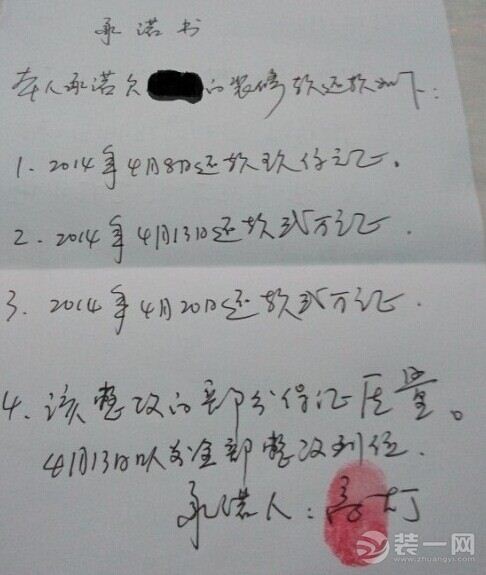 承诺书
本人承诺欠 的装修款还款如下:
1. 2014年4月8日还款玖仟元正。
2. 2014年4月13日还款贰万元正.
3. 2014年4月20日还款贰万元正.
4. 该整改的部分保证质量。
4月13日以前全部整改到位.
承诺人:高
装一网
www.zhuangyi.com